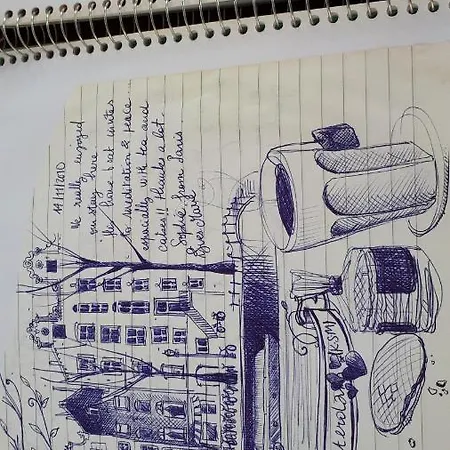 11/11/2010
We really enjoyed
our stay here.
The house boat invites
to meditation & peace
especially with tea and
Cakes!! thanks a lot.
Sophie from Paris
Yves Marie
terda